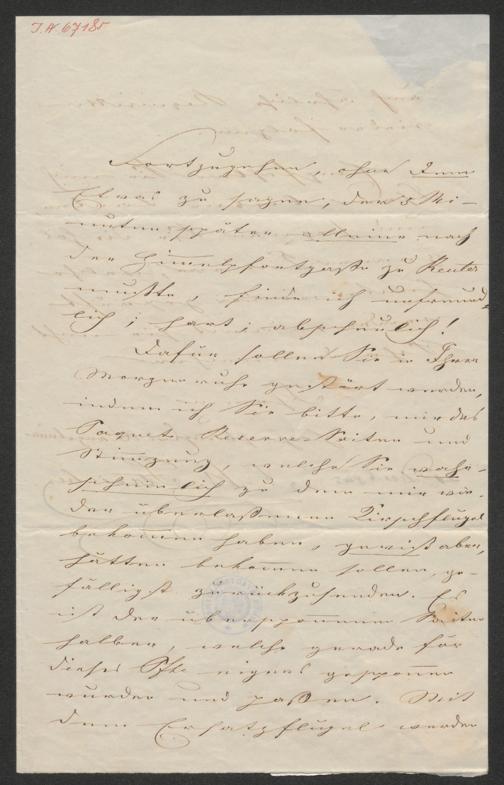 I.N. 67185
Fortzugehen, ohne Dem
Etwas zu sagen, der 5 Mi-
nuten später alleine nach
der Himmelpfortgasse zu Reuter
mußte, finde ich unfreund-
lich; hart; abscheulich!
Dafür sollen Sie in Ihrer
Morgenruhe gestört werden,
indem ich Sie bitte, mir das
Paquet Reserve-Saiten und
Stimmzeug, welche Sie wahr-
scheinlich zu dem mir wie-
der überlaßenen Kirschflügel
bekommen haben, gewiß aber,
hätten bekommen sollen, ge-
fälligst zurückzusenden. Es
ist der übersponnenen Saiten
halber, welche gerade für
dieses eigens gesponnen
wurden und paßen. Mit
dem Ersatzflügel werden